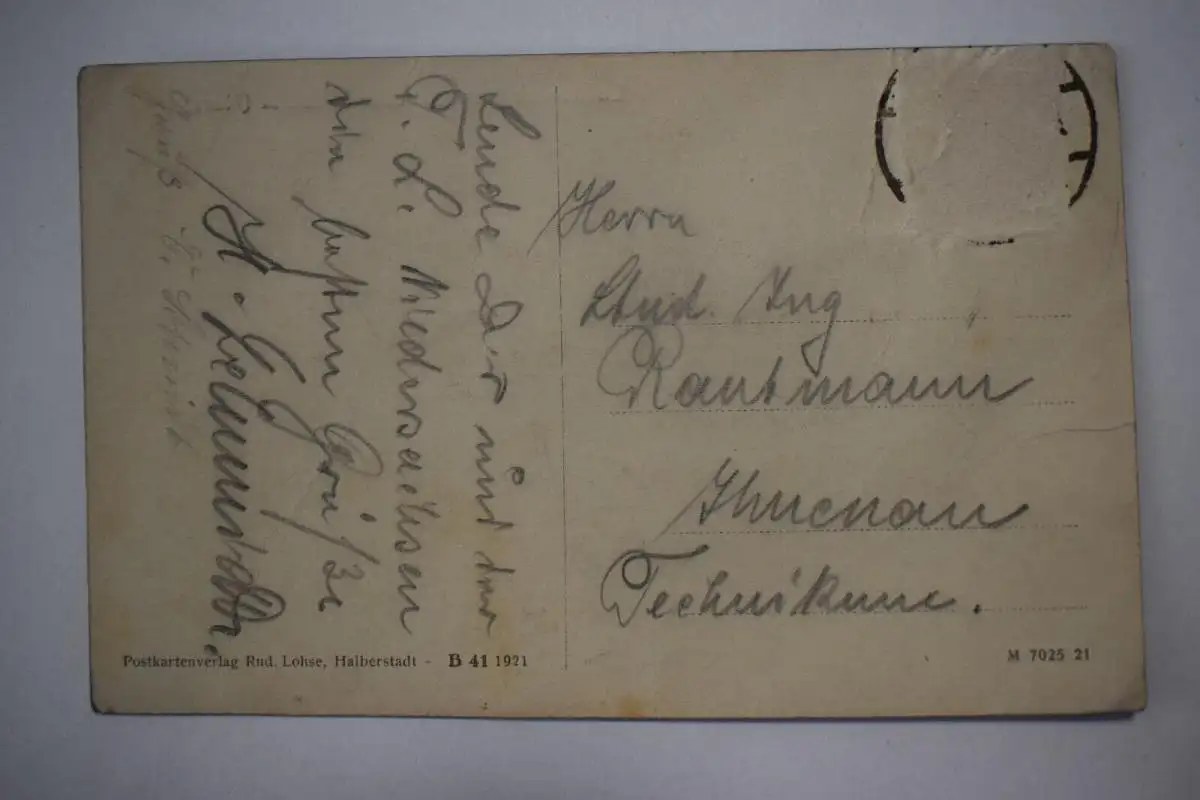 Sende Dir und der
T. L. Niedersachsen
die besten Grüße
H.
Gruß
Herrn
Stud. Ing
Rautmann
Ilmenau
Technikum.
Postkartenverlag Rud. Lohse, Halberstadt - B 41 1921
M 7025 21